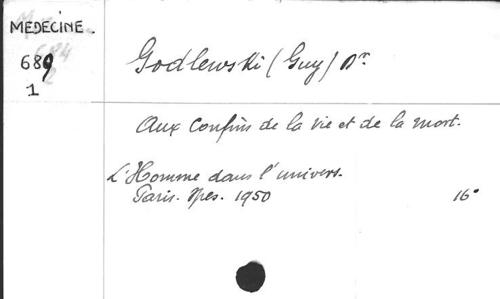 MEDECINE.
689
1
Godlewski (Guy) Dr.
Aux confins de la vie et de la mort.
L'Homme dans l'univers.
Paris. 1950 16°